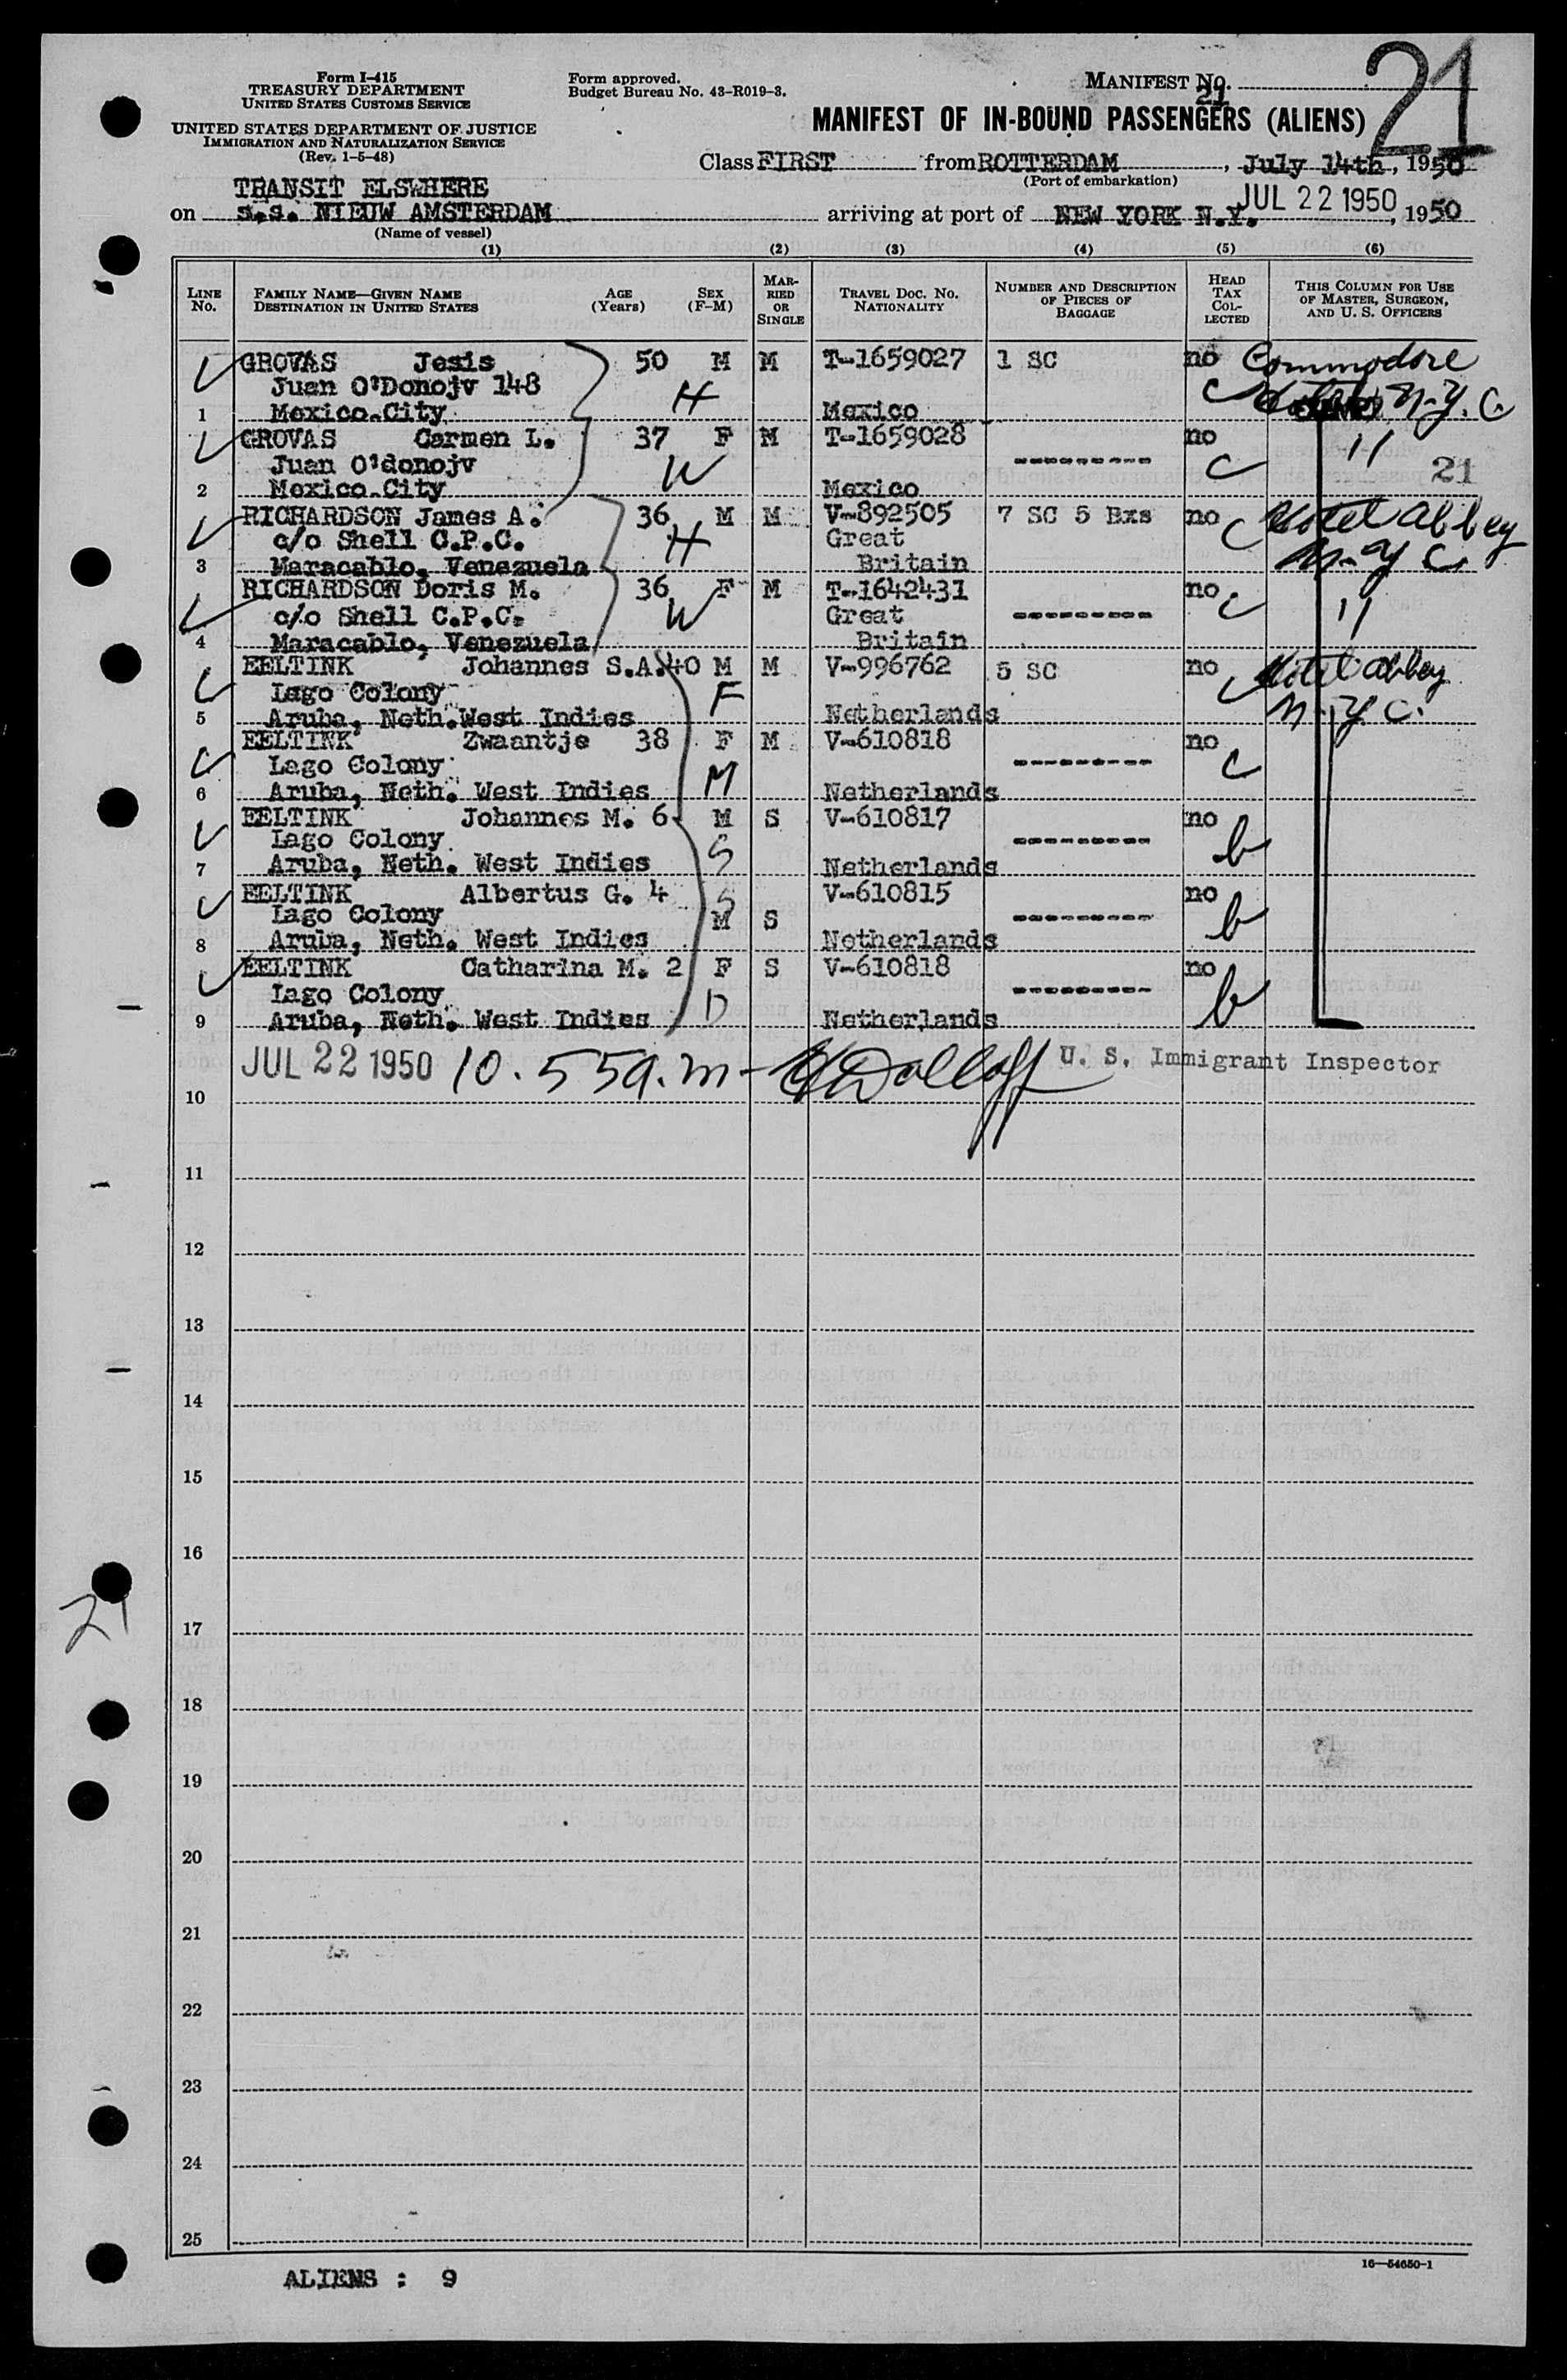 Form I-415
TREASURY DEPARTMENT
UNITED STATES CUSTOMS SERVICE
UNITED STATES DEPARTMENT OF JUSTICE
IMMIGRATION AND NATURALIZATION SERVICE
(Rev. 1-5-48)
Form approved.
Budget Bureau No. 43-R019-3.
MANIFEST NO.
21
21
MANIFEST OF IN-BOUND PASSENGERS (ALIENS)
Class FIRST from ROTTERDAM, July 14th, 1950
(Port of embarkation)
TRANSIT ELSWHERE
on s.s. NIEUW AMSTERDAM arriving at port of NEW YORK N.Y. JUL 22 1950, 1950
(Name of vessel)
(1) (2) (3) (4) (5) (6)
LINE NO. FAMILY NAME—GIVEN NAME DESTINATION IN UNITED STATES AGE (Years) SEX (F-M) MARRIED OR SINGLE TRAVEL DOC. NO. NATIONALITY NUMBER AND DESCRIPTION OF PIECES OF BAGGAGE HEAD TAX COLLECTED THIS COLUMN FOR USE OF MASTER, SURGEON, AND U. S. OFFICERS
GROVAS Jesis 50 M M T-1659027 1 SC no Commodore
Juan O'Donojv 148 H C Hotel N.Y.C.
1 Mexico City Mexico
GROVAS Carmen L. 37 F M T-1659028 no 11
Juan O'donojv W --------- C 21
2 Mexico City Mexico
RICHARDSON James A. 36 M M V-892505 7 SC 5 Bxs no C Hotel Abbey
c/o Shell C.P.C. H Great N.Y.C.
3 Maracablo, Venezuela Britain
RICHARDSON Doris M. 36 F M T-1642431 no C 11
c/o Shell C.P.C. W Great ---------
4 Maracablo, Venezuela Britain
EELTINK Johannes S.A. 40 M M V-996762 5 SC no C Hotel Abbey
Lago Colony F N.Y.C.
5 Aruba, Neth. West Indies Netherlands
EELTINK Zwaantje 38 F M V-610818 no
Lago Colony M --------- C
6 Aruba, Neth. West Indies Netherlands
EELTINK Johannes M. 6 M S V-610817 no
Lago Colony S --------- b
7 Aruba, Neth. West Indies Netherlands
EELTINK Albertus G. 4 S V-610815 no
Lago Colony M S --------- b
8 Aruba, Neth. West Indies Netherlands
EELTINK Catharina M. 2 F S V-610818 no
Lago Colony D --------- b
9 Aruba, Neth. West Indies Netherlands
JUL 22 1950 10.55 a.m- U. S. Immigrant Inspector
10
11
12
13
14
15
16
21
17
18
19
20
21
22
23
24
25
16—54650-1
ALIENS : 9